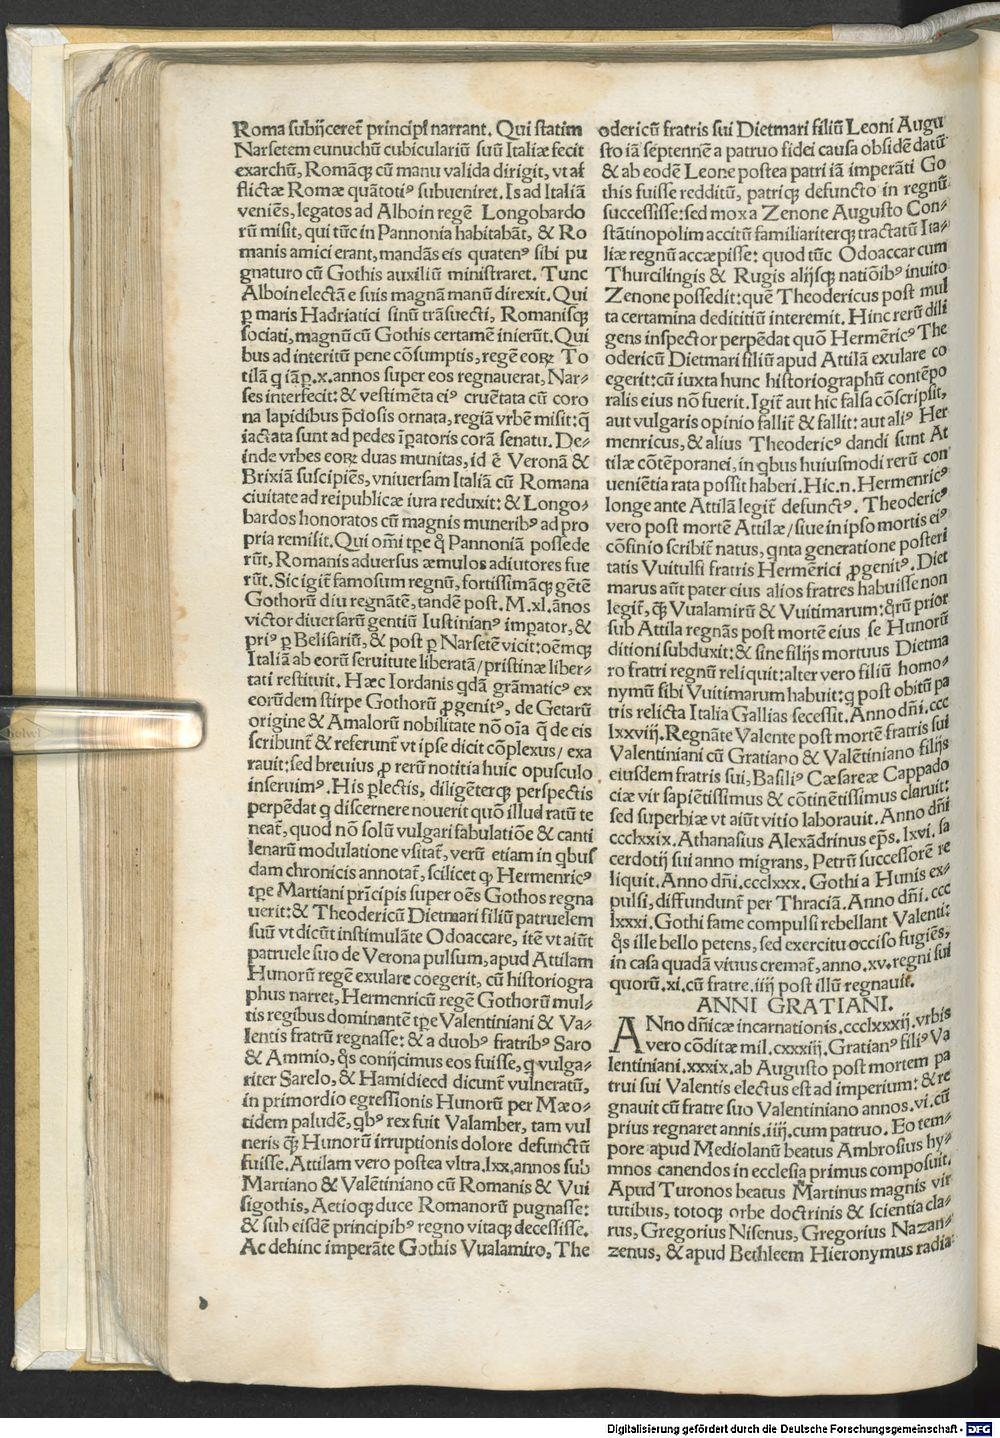 Roma subijceret̃ principi narrant. Qui statim
Narsetem eunuchũ cubiculariũ suũ Italiæ fecit
exarchũ, Romãq; cũ manu valida dirigit, vt af
flictæ Romæ quãtotiꝰ subueniret. Is ad Italiã
veniẽs, legatos ad Alboin regẽ Longobardo
rũ misit, qui tũc in Pannonia habitabãt, & Ro
manis amici erant, mandãs eis quatenꝰ sibi pu
gnaturo cũ Gothis auxiliũ ministraret. Tunc
Alboin electã e suis magnã manũ direxit. Qui
ꝑ maris Hadriatici sinũ trãsuecti, Romanisq;
sociati, magnũ cũ Gothis certamẽ inierũt. Qui
bus ad interitũ pene cõsumptis, regẽ eoꝝ To
tilã q iãꝑ.x.annos super eos regnauerat, Nar⸗
ses interfecit: & vestimẽta eiꝰ cruẽtata cũ coro
na lapidibus p̃ciosis ornata, regiã vrbẽ misit: q̃
iactata sunt ad pedes ĩꝑatoris corã senatu. De⸗
inde vrbes eoꝝ duas munitas, id ẽ Veronã &
Brixiã suscipiẽs, vniuersam Italiã cũ Romana
ciuitate ad reipublicæ iura reduxit: & Longo⸗
bardos honoratos cũ magnis muneribꝰ ad pro
pria remisit. Qui om̃i tꝑe q̃ Pannoniã possede
rũt, Romanis aduersus æmulos adiutores fue
rũt. Sic igit̃ famosum regnũ, fortissimãq; gẽtẽ
Gothorũ diu regnãtẽ, tandẽ post. M.xl.ãnos
victor diuersarũ gentiũ Iustinianꝰ imꝑator, &
priꝰ ꝑ Belisariũ, & post ꝑ Narsetẽ vicit: oẽmq;
Italiã ab eorũ seruitute liberatã/pristinæ liber⸗
tati restituit. Hæc Iordanis qdã grãmaticꝰ ex
eorũdem stirpe Gothorũ ꝓgenitꝰ, de Getarũ
origine & Amalorũ nobilitate nõ oĩa q̃ de eis
scribunt̃ & referunt̃ vt ipse dicit cõplexus/ exa
rauit: sed breuius ꝓ rerũ notitia huic opusculo
inseruimꝰ. His ꝑlectis, diligẽterq; perspectis
perpẽdat q discernere nouerit quõ illud ratũ te
neat̃, quod nõ solũ vulgari fabulatiõe & canti
lenarũ modulatione vsitat̃, verũ etiam in qbus
dam chronicis annotat̃, scilicet ꝙ Hermenricꝰ
tꝑe Martiani prĩcipis super oẽs Gothos regna
uerit: & Theodericũ Dietmari filiũ patruelem
suũ vt dicũt instimulãte Odoaccare, itẽ vt aiũt
patruele suo de Verona pulsum, apud Attilam
Hunorũ regẽ exulare coegerit, cũ historiogra
phus narret, Hermenricũ regẽ Gothorũ mul⸗
tis regibus dominantẽ tꝑe Valentiniani & Va⸗
lentis fratrũ regnasse: & a duobꝰ fratribꝰ Saro
& Ammio, q̃s conijcimus eos fuisse, q vulga⸗
riter Sarelo, & Hamidiecd dicunt̃ vulneratũ,
in primordio egressionis Hunorũ per Mæo⸗
tidem paludẽ, qbꝰ rex fuit Valamber, tam vul
neris q̃; Hunorũ irruptionis dolore defunctũ
fuisse. Attilam vero postea vltra.lxx.annos sub
Martiano & Valẽtiniano cũ Romanis & Vui
sigothis, Aetioq; duce Romanorũ pugnasse:
& sub eisdẽ principibꝰ regno vitaq; decessisse.
Ac dehinc imperãte Gothis Vualamiro, The
odericũ fratris sui Dietmari filiũ Leoni Augu
sto iã septennẽ a patruo fidei causa obsidẽ datũ
& ab eodẽ Leone postea patri iã imperãti Go
this fuisse redditũ, patriq; defuncto in regnũ
successisse: sed mox a Zenone Augusto Con⸗
stãtinopolim accitũ familiariterq; tractatũ Ita⸗
liæ regnũ accæpisse: quod tũc Odoaccar cum
Thurcilingis & Rugis alijsq; natiõibꝰ inuito
Zenone possedit: quẽ Theodericus post mul
ta certamina dedititiũ interemit. Hinc rerũ dili
gens inspector perpẽdat quõ Hermẽricꝰ The
odericũ Dietmari filiũ apud Attilã exulare co
egerit: cũ iuxta hunc historiographũ contẽpo
ralis eius nõ fuerit. Igit̃ aut hic falsa cõscripsit,
aut vulgaris opinio fallit̃ & fallit: aut aliꝰ Her
menricus, & alius Theodericꝰ dandi sunt At
tilæ cõtẽporanei, in qbus huiusmodi rerũ con
ueniẽtia rata possit haberi. Hic.n. Hermenricꝰ
longe ante Attilã legit̃ defunctꝰ. Theodericꝰ
vero post mortẽ Attilæ/siue in ipso mortis eiꝰ
cõfinio scribit̃ natus, qnta generatione posteri
tatis Vuitulfi fratris Hermẽrici ꝓgenitꝰ. Diet
marus aũt pater eius alios fratres habuisse non
legit̃, q̃; Vualamirũ & Vuitimarum: q̃rũ prior
sub Attila regnãs post mortẽ eius se Hunorũ
ditioni subduxit: & sine filijs mortuus Dietma
ro fratri regnũ reliquit: alter vero filiũ homo⸗
nymũ sibi Vuitimarum habuit: q post obitũ pa
tris relicta Italia Gallias secessit. Anno dñi.ccc
lxxviij. Regnãte Valente post mortẽ fratris sui
Valentiniani cũ Gratiano & Valẽtiniano filijs
eiusdem fratris sui, Basiliꝰ Cæsareæ Cappado
ciæ vir sapiẽtissimus & cõtinẽtissimus claruit:
sed superbiæ vt aiũt vitio laborauit. Anno dñi
ccclxxix. Athanasius Alexãdrinus ep̃s. lxvi. sa
cerdotij sui anno migrans, Petrũ successorẽ re
liquit. Anno dñi.ccclxxx. Gothi a Hunis ex⸗
pulsi, diffundunt̃ per Thraciã. Anno dñi. ccc
lxxxi. Gothi fame compulsi rebellant Valenti:
q̃s ille bello petens, sed exercitu occiso fugiẽs,
in casa quadã viuus cremat̃, anno.xv.regni sui
quorũ.xi.cũ fratre.iiij post illũ regnauit.
ANNI GRATIANI.
ANno dñicæ incarnationis.ccclxxxij.vrbis
vero cõditæ mil.cxxxiij. Gratianꝰ filiꝰ Va
lentiniani.xxxix.ab Augusto post mortem pa
trui sui Valentis electus est ad imperium: & re
gnauit cũ fratre suo Valentiniano annos.vi.cũ
prius regnaret annis.iiij.cum patruo. Eo tem⸗
pore apud Mediolanũ beatus Ambrosius hy⸗
mnos canendos in ecclesia primus composuit.
Apud Turonos beatus Martinus magnis vir
tutibus, totoq; orbe doctrinis & scientia cla⸗
rus, Gregorius Nisenus, Gregorius Nazan⸗
zenus, & apud Bethleem Hieronymus radia⸗
Digitalisierung gefördert durch die Deutsche Forschungsgemeinschaft - DFG